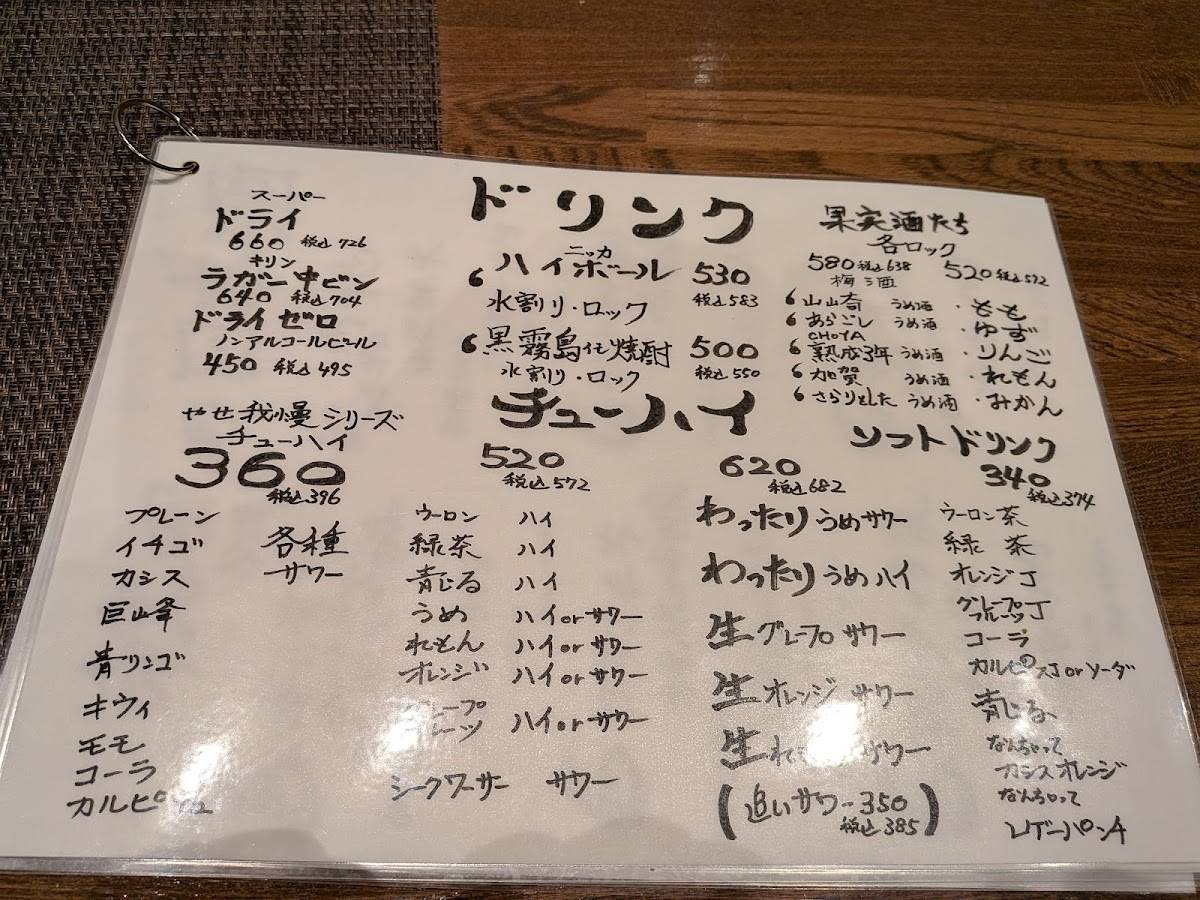 ドリンク
スーパー
ドライ
660 税込726
キリン
ラガー中ビン
640 税込704
ドライゼロ
ノンアルコールビール
450 税込495
ニッカ
ハイボール 530
税込583
水割り・ロック
黒霧島 他 焼酎 500
税込550
水割り・ロック
果実酒たち
各ロック
580税込638 520税込572
梅酒
山崎 うめ酒 ・もも
あらごし うめ酒 ・ゆず
CHOYA
熟成3年 うめ酒 ・りんご
加賀 うめ酒 ・れもん
さらりとした うめ酒 ・みかん
チューハイ
やせ我慢シリーズ
チューハイ
360
税込396
プレーン
イチゴ
カシス
巨峰
青リンゴ
キウイ
モモ
コーラ
カルピス
各種
サワー
520
税込572
ウーロン ハイ
緑茶 ハイ
青じる ハイ
うめ ハイorサワー
れもん ハイorサワー
オレンジ ハイorサワー
ハイorサワー
シークワーサー サワー
620
税込682
わったりうめサワー
わったりうめハイ
生グレープサワー
生オレンジサワー
生れ サワー
(追いサワー350
税込385)
ソフトドリンク
340
税込374
ウーロン茶
緑茶
オレンジJ
グレープ
フルーツJ
コーラ
カルピスJorソーダ
青じる
なんちゃって
カシスオレンジ
なんちゃって
レゲーパンチ